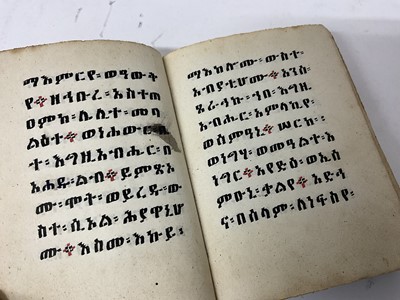 ማእምርየ፡ወዓውቅ
የ፨ዘኅቡረ፡አስተጠ
ዐምከ፡ሊሊተ፡መባ
ልዕተ፨ወነሐውር፡ቤ
ተ፡እግዚአብሔር፡በ
አሐዱ፡ልብ፨ይምጽኦ
ሙ፡ሞት፡ወይረዱ፡ው
ስተ፡ሲኦል፡ሕያዋኒሆ
ሙ፨እስመ፡እኩይ፡
ማእከሎሙ፡ውስተ፡
አብያቲሆሙ፨አንሰ፡
ጸራኅኩ፡ኀበ፡እግዚ
አብሔር፡አምላኪየ፡
ወሰምዓኒ፨ሠርከ፡
ወነግሃ፡ወመዓልተ፡እ
ነግር፨አየድዕ፡ወእስ
ምዑኒ፡ቃልየ፨አድኅ
ና፡በሰላም፡ለነፍስየ፡